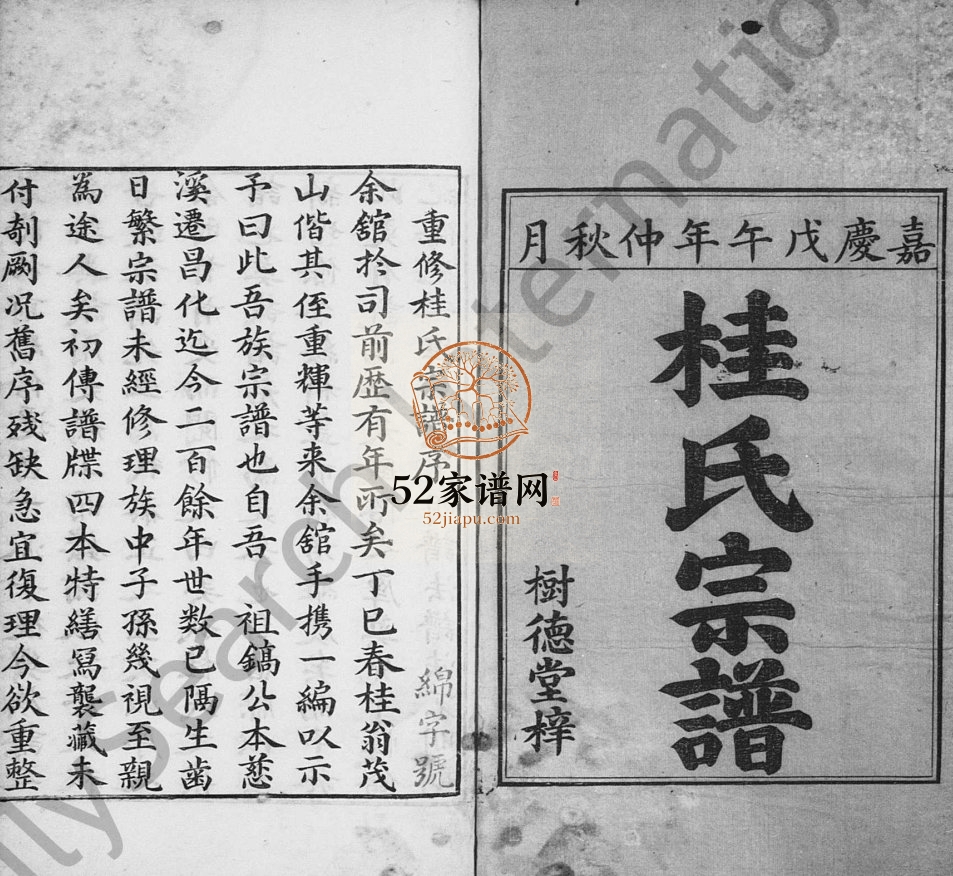 嘉慶戊午年仲秋月
桂氏宗譜
樹德堂梓
重修桂氏宗譜序
綿字號
余舘於司前歷有年所矣丁巳春桂翁茂
山偕其侄重輝等来余舘手携一編以示
予曰此吾族宗譜也自吾 祖鎬公本慈
溪遷昌化迄今二百餘年世数已隔生齒
日繁宗譜未經修理族中子孫幾視至親
為途人矣初傳譜牒四本特繕寫襲藏未
付剞劂况舊序残缺急宜復理今欲重整
52家谱网
52jiapu.com
lySearch International